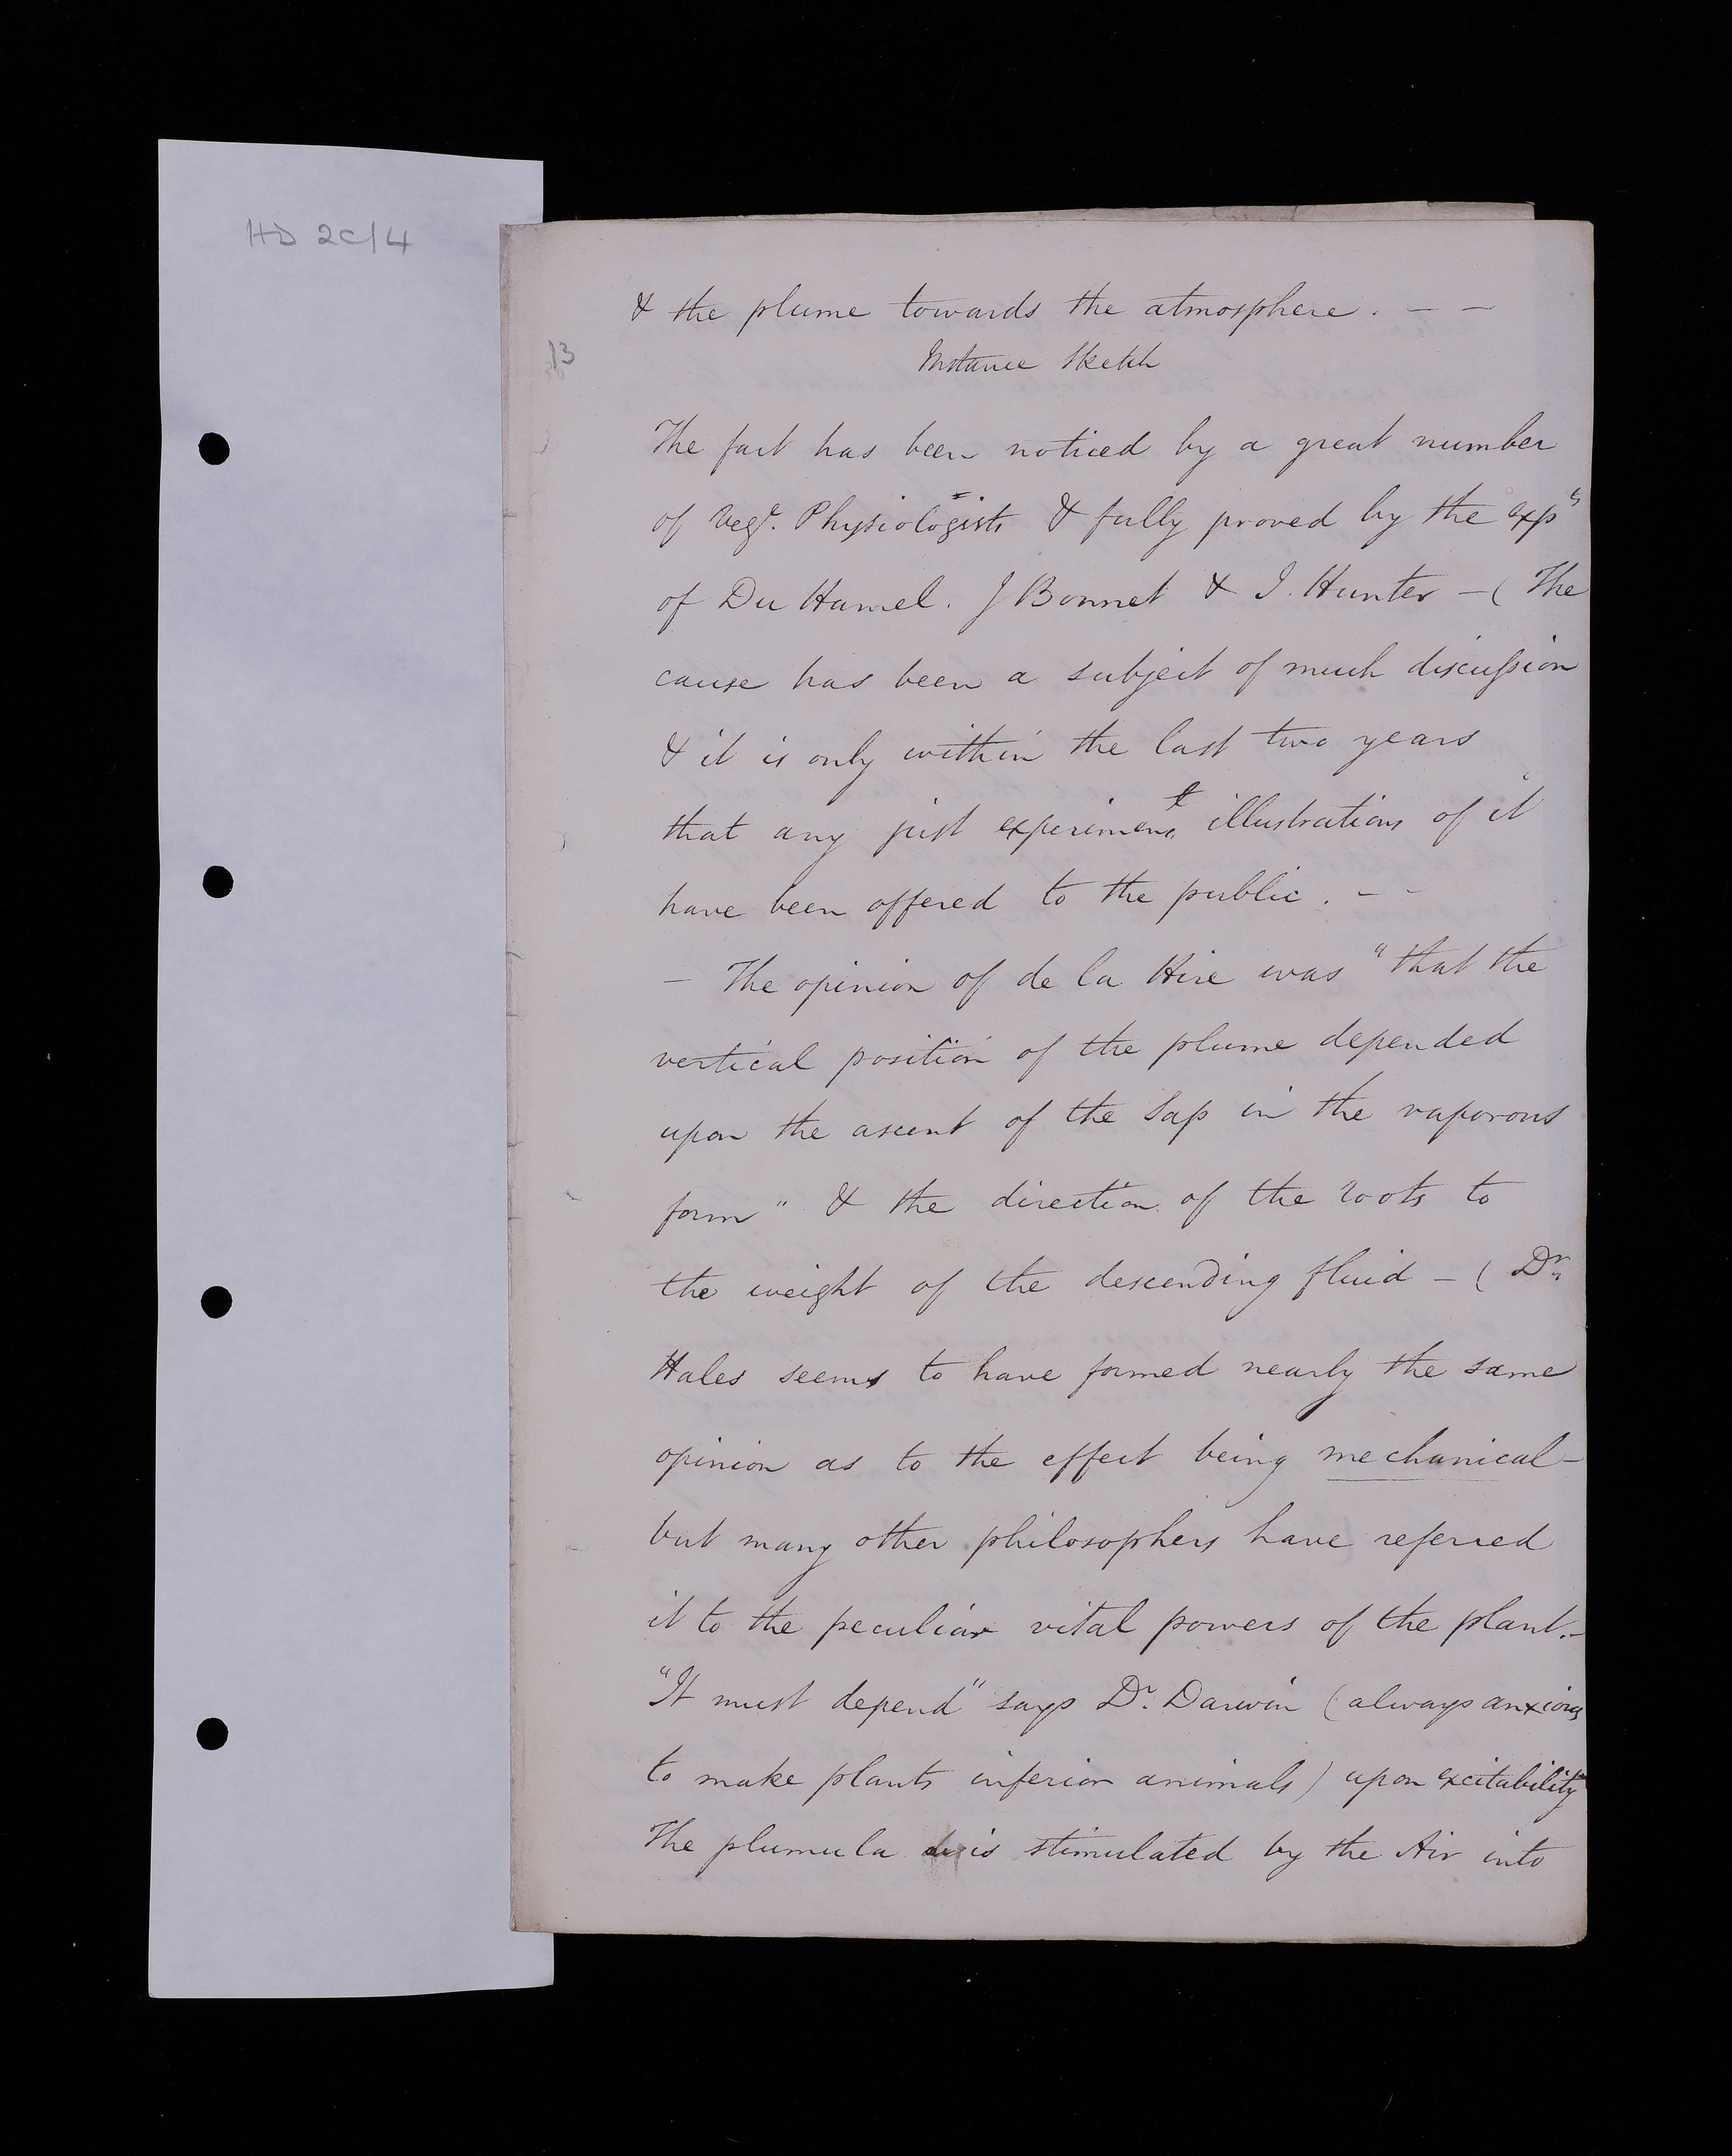 HD 2C/4
& the plume towards the atmosphere. — —
13
Instance Sketch
The fact has been noticed by a great number
of Vege. Physiologists & fully proved by the expts
of Du Hamel. J Bonnet & J. Hunter — ( The
cause has been a subject of much discussion
& it is only within the last two years
that any just experiment illustrations of it
have been offered to the public. — -
— The opinion of de la Hire was "that the
vertical position of the plume depended
upon the ascent of the Sap in the vaporous
form" & the direction of the roots to
the weight of the descending fluid — ( Dr.
Hales seems to have formed nearly the same
opinion as to the effect being mechanical —
but many other philosophers have referred
it to the peculiar vital powers of the plant. -
"It must depend" says Dr. Darwin (always anxious
to make plants inferior animals) upon excitability
The plumula is stimulated by the Air into